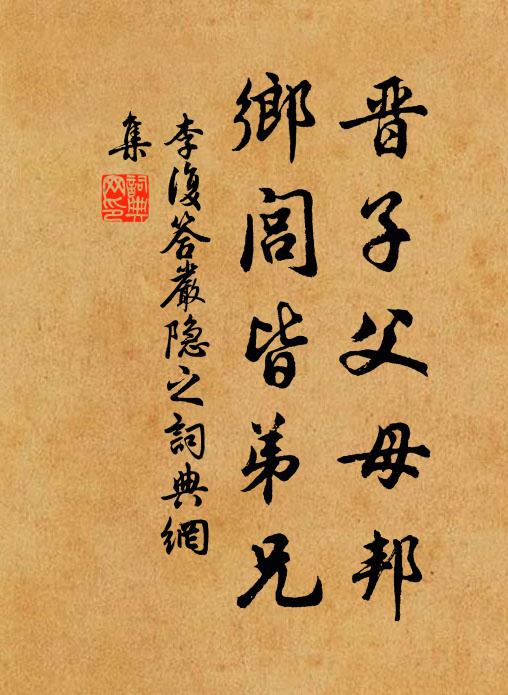 晋子父母邦
鄉閭皆弟兄
李復答嚴隐之詞典網
集
詞典
网印